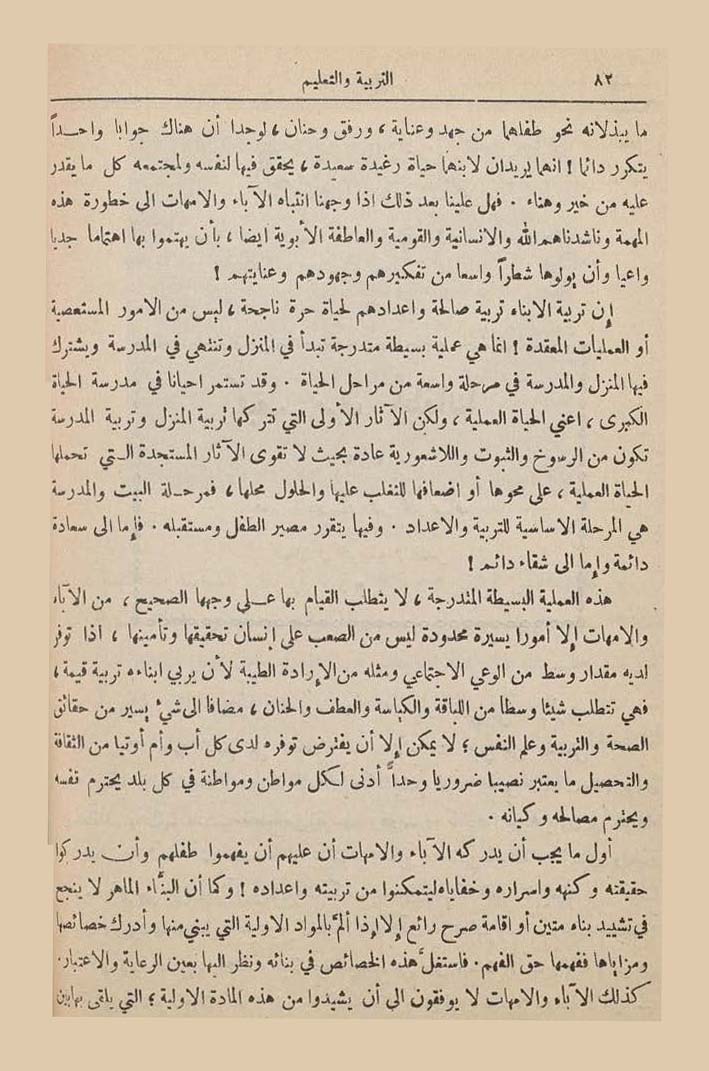 ٨٢ التربية والتعليم
ما يبذلانه نحو طفلهما من جهد وعناية ، ورفق وحنان ، لوجدا أن هناك جوابا واحداً
يتكرر دائما ! انهما يريدان لابنهما حياة رغيدة سعيدة ، يحقق فيها لنفسه ولمجتمعه كل ما يقدر
عليه من خير وهناء . فهل علينا بعد ذلك اذا وجهنا انتباه الآباء والامهات الى خطورة هذه
المهمة وناشدناهم الله والانسانية والقومية والعاطفة الأبوية ايضا ، بأن يهتموا بها اهتماما جديا
واعيا وأن يولوها شطراً واسعا من تفكيرهم وجهودهم وعنايتهم !
إن تربية الابناء تربية صالحة واعدادهم لحياة حرة ناجحة ، ليس من الامور المستعصية
أو العمليات المعقدة ! انما هي عملية بسيطة متدرجة تبدأ في المنزل وتنتهي في المدرسة ويشترك
فيها المنزل والمدرسة في مرحلة واسعة من مراحل الحياة . وقد تستمر احيانا في مدرسة الحياة
الكبرى ، اعني الحياة العملية ، ولكن الآثار الأولى التي تتركها تربية المنزل وتربية المدرسة
تكون من الرسوخ والثبوت واللاشعورية عادة بحيث لا تقوى الآثار المستجدة التي تحملها
الحياة العملية ، على محوها أو اضعافها للتغلب عليها والحلول محلها ، فمرحلة البيت والمدرسة
هي المرحلة الاساسية للتربية والاعداد . وفيها يتقرر مصير الطفل ومستقبله . فإما الى سعادة
دائمة وإما الى شقاء دائم !
هذه العملية البسيطة المتدرجة ، لا يتطلب القيام بها على وجهها الصحيح ، من الآباء
والامهات إلا أمورا يسيرة محدودة ليس من الصعب على إنسان تحقيقها وتأمينها ، اذا توفر
لديه مقدار وسط من الوعي الاجتماعي ومثله من الإرادة الطيبة لأن يربي ابناءه تربية قيمة ،
فهي تتطلب شيئا وسطا من اللباقة والكياسة والعطف والحنان ، مضافا الى شيء يسير من حقائق
الصحة والتربية وعلم النفس ؛ لا يمكن إلا أن يفترض توفره لدى كل أب وأم أوتيا من الثقافة
والتحصيل ما يعتبر نصيبا ضروريا وحداً أدنى لكل مواطن ومواطنة في كل بلد يحترم نفسه
ويحترم مصالحه وكيانه .
أول ما يجب أن يدركه الآباء والامهات أن عليهم أن يفهموا طفلهم وأن يدركوا
حقيقته وكنهه واسراره وخفاياه ليتمكنوا من تربيته واعداده ! وكما أن البنَّاء الماهر لا ينجح
في تشييد بناء متين أو اقامة صرح رائع إلا إذا ألمَّ بالمواد الاولية التي يبني منها وأدرك خصائصها
ومزاياها ففهمها حق الفهم. فاستغلَّ هذه الخصائص في بنائه ونظر اليها بعين الرعاية والاعتبار.
كذلك الآباء والامهات لا يوفقون الى أن يشيدوا من هذه المادة الاولية ؛ التي يلقى بها بين